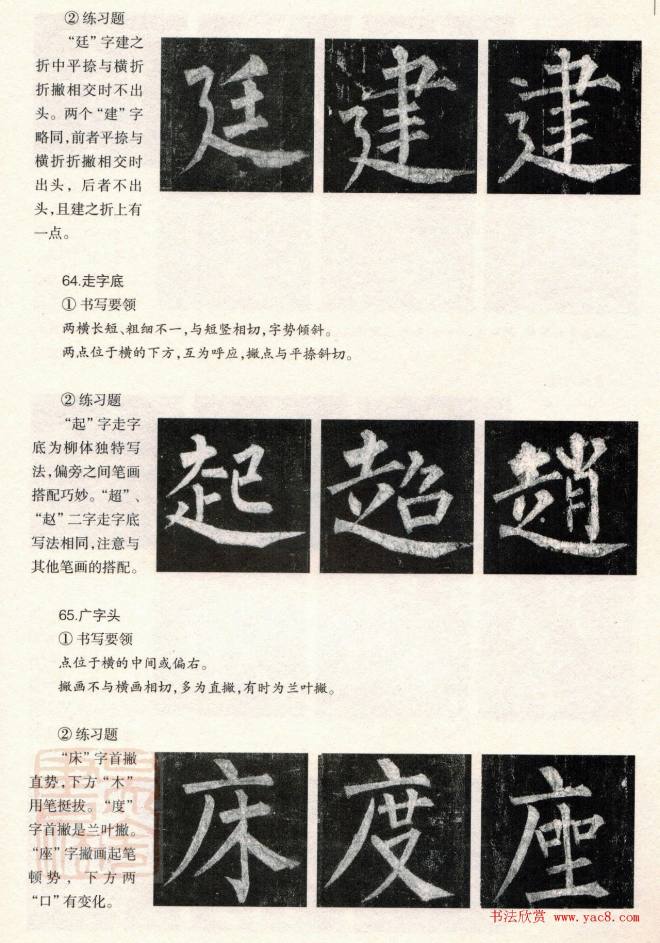 ② 练习题
“廷”字建之
折中平捺与横折
折撇相交时不出
头。两个“建”字
略同,前者平捺与
横折折撇相交时
出头，后者不出
头,且建之折上有
一点。
廷 建 建
64.走字底
① 书写要领
两横长短、粗细不一,与短竖相切,字势倾斜。
两点位于横的下方,互为呼应,撇点与平捺斜切。
② 练习题
“起”字走字
底为柳体独特写
法,偏旁之间笔画
搭配巧妙。“超”、
“赵”二字走字底
写法相同,注意与
其他笔画的搭配。
起 超 趙
65.广字头
① 书写要领
点位于横的中间或偏右。
撇画不与横画相切,多为直撇,有时为兰叶撇。
② 练习题
“床”字首撇
直势,下方“木”
用笔挺拔。“度”
字首撇是兰叶撇。
“座”字撇画起笔
顿势，下方两
“口”有变化。
床 度 座
书法欣赏 www.yac8.com